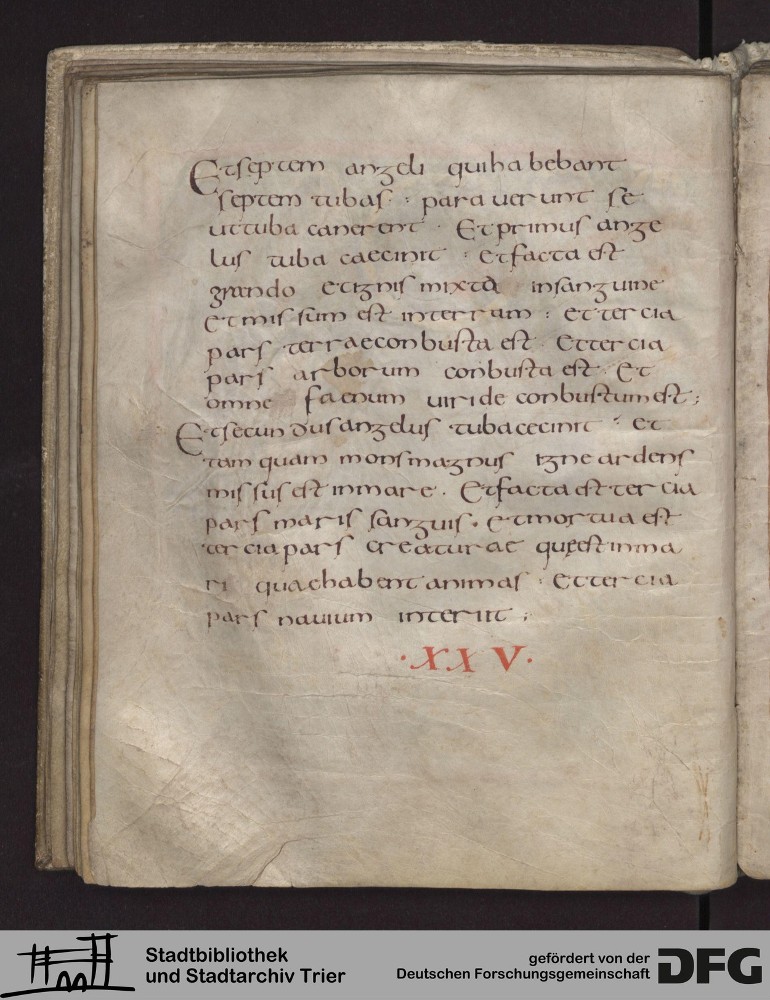 Et septem angeli qui habebant
septem tubas · parauerunt se
ut tuba canerent · Et primus ange
lus tuba caecinit · et facta est
grando et ignis mixta in sanguine
et missum est in terram · et tercia
pars terrae conbusta est · Et tercia
pars arborum conbusta est · Et
omne faenum uiride conbustum est ;
Et secundus angelus tuba cecinit · et
tamquam mons magnus igne ardens
missus est in mare · Et facta est tercia
pars maris sanguis · et mortua est
tercia pars creaturae que est in ma
ri quae habent animas · Et tercia
pars nauium interiit ;
·XXV·
Stadtbibliothek
und Stadtarchiv Trier
gefördert von der
Deutschen Forschungsgemeinschaft
DFG